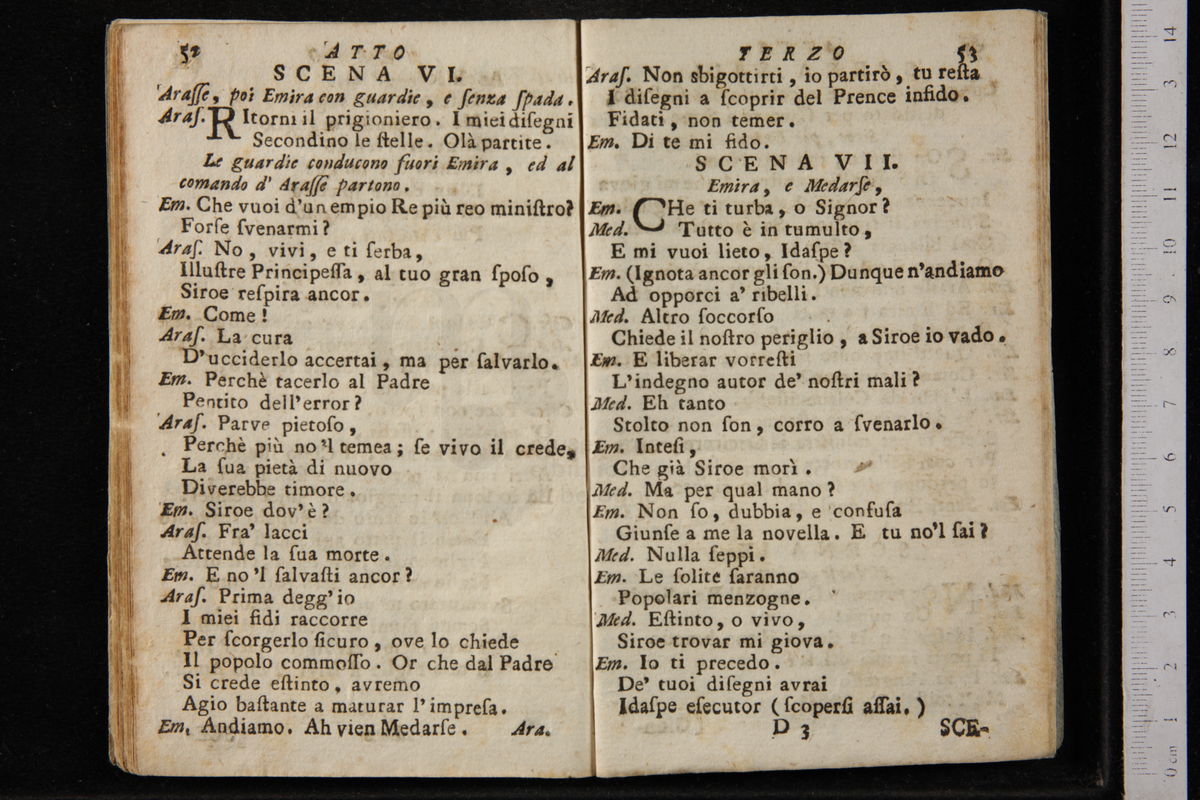 52 ATTO
SCENA VI.
Araſſe, poi Emira con guardie, e ſenza ſpada.
Araſ. RItorni il prigioniero. I miei diſegni
Secondino le ſtelle. Olà partite.
Le guardie conducono fuori Emira, ed al
comando d' Araſſe partono.
Em. Che vuoi d'un empio Re più reo miniſtro?
Forſe ſvenarmi?
Araſ. No, vivi, e ti ſerba,
Illuſtre Principeſſa, al tuo gran ſpoſo,
Siroe reſpira ancor.
Em. Come!
Araſ. La cura
D'ucciderlo accertai, ma per ſalvarlo.
Em. Perchè tacerlo al Padre
Pentito dell'error?
Araſ. Parve pietoſo,
Perchè più no'l temea; ſe vivo il crede,
La ſua pietà di nuovo
Diverebbe timore.
Em. Siroe dov'è?
Araſ. Fra' lacci
Attende la ſua morte.
Em. E no'l ſalvaſti ancor?
Araſ. Prima degg'io
I miei fidi raccorre
Per ſcorgerlo ſicuro, ove lo chiede
Il popolo commoſſo. Or che dal Padre
Si crede eſtinto, avremo
Agio baſtante a maturar l'impreſa.
Em. Andiamo. Ah vien Medarſe. Ara.
TERZO 53
Araſ. Non sbigottirti, io partirò, tu reſta
I diſegni a ſcoprir del Prence infido.
Fidati, non temer.
Em. Di te mi fido.
SCENA VII.
Emira, e Medarſe,
Em. CHe ti turba, o Signor?
Med. Tutto è in tumulto,
E mi vuoi lieto, Idaſpe?
Em. (Ignota ancor gli ſon.) Dunque n'andiamo
Ad opporci a' ribelli.
Med. Altro ſoccorſo
Chiede il noſtro periglio, a Siroe io vado.
Em. E liberar vorreſti
L'indegno autor de' noſtri mali?
Med. Eh tanto
Stolto non ſon, corro a ſvenarlo.
Em. Inteſi,
Che già Siroe morì.
Med. Ma per qual mano?
Em. Non ſo, dubbia, e confuſa
Giunſe a me la novella. E tu no'l ſai?
Med. Nulla ſeppi.
Em. Le ſolite ſaranno
Popolari menzogne.
Med. Eſtinto, o vivo,
Siroe trovar mi giova.
Em. Io ti precedo.
De' tuoi diſegni avrai
Idaſpe eſecutor (ſcoperſi aſſai.)
D 3 SCE-
0 cm 1 2 3 4 5 6 7 8 9 10 11 12 13 14